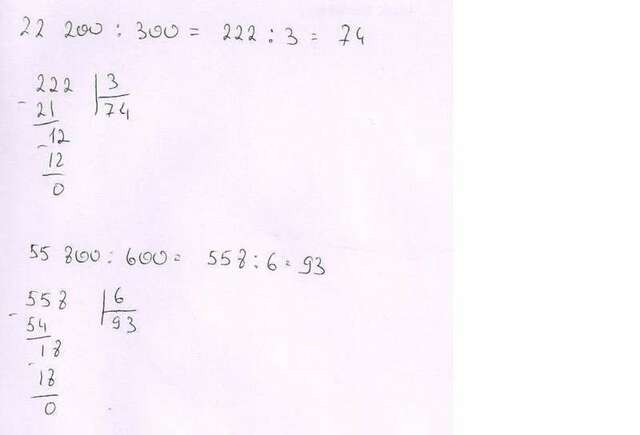 22 200 : 300 = 222 : 3 = 74
- 222 | 3
21 | 74
- 12
12
0
55 800 : 600 = 558 : 6 = 93
- 558 | 6
54 | 93
- 18
18
0